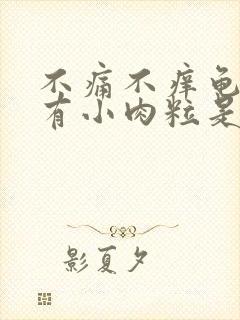 不痛不痒龟
有小肉粒是
影夏夕